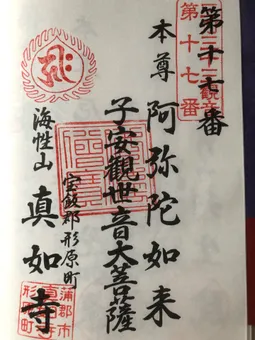 第十七番
第十七番
本尊 阿弥陀如来
子安觀世音大菩薩
宝飯郡形原町
海性山 真如寺
蒲郡市
形原町